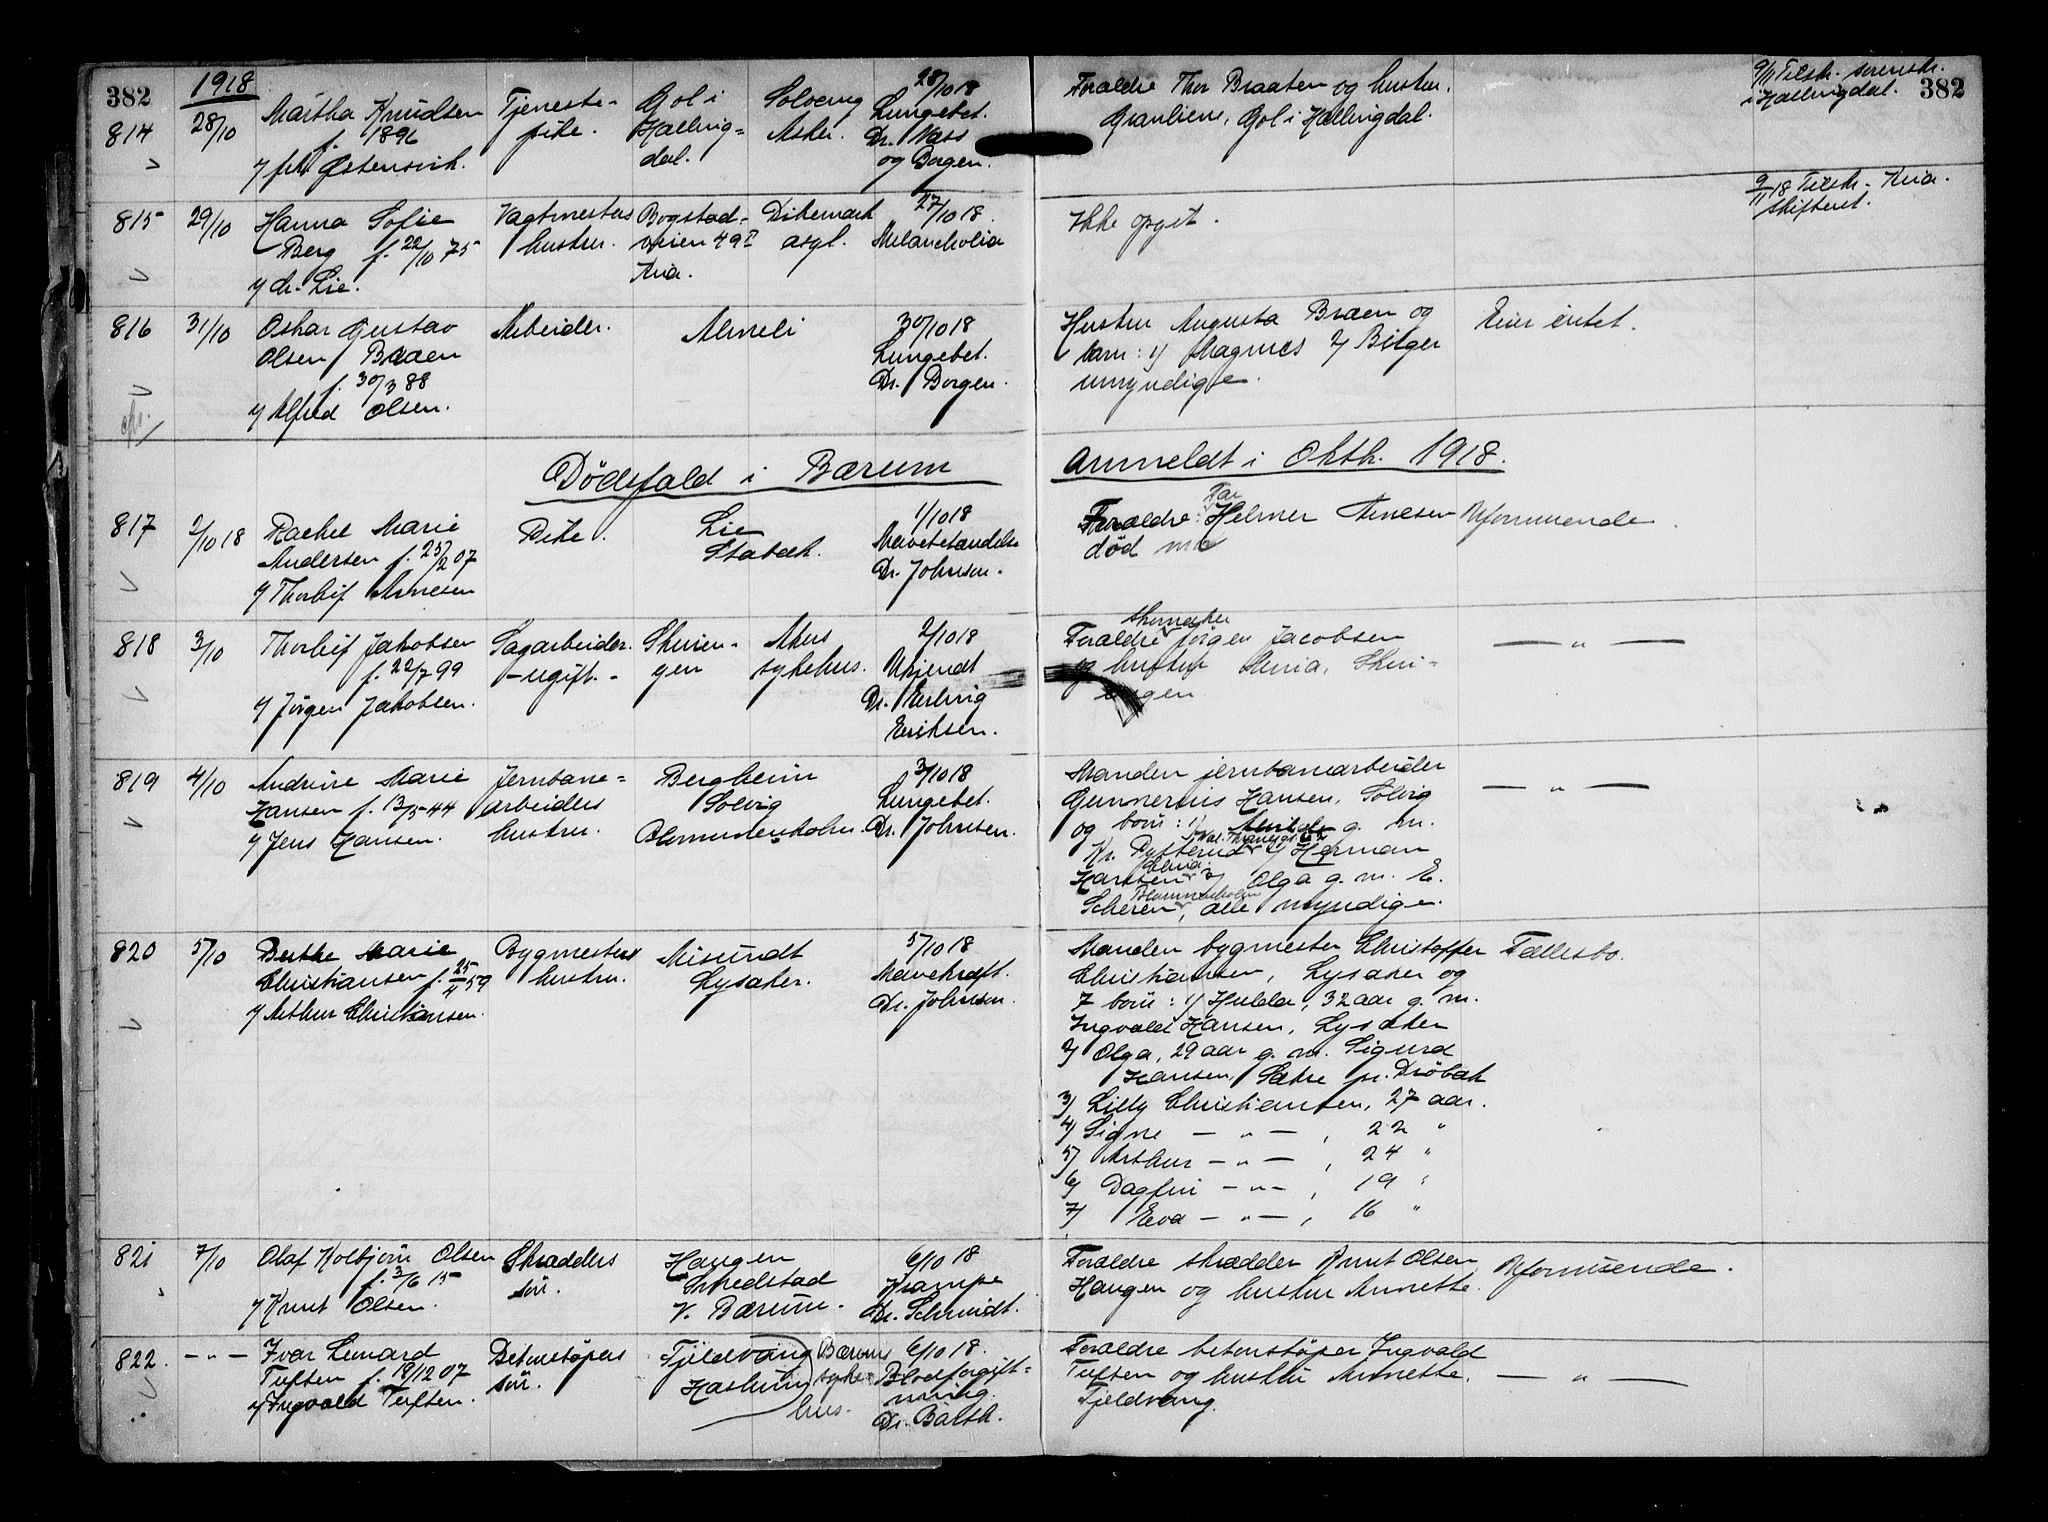 382
1918
814
28/10
Martha Knudsen
f. 1896
v/ frk Østensvik.
Tjeneste-
pike.
Gol i
Halling=
dal.
Solveng
Asker.
28/10 18
Lungebet.
Dr. Wass
og Borgen.
Forældre Thor Braaten og hustru.
Granliene, Gol i Hallingdal.
9/11 Tilskr. sorenskr.
i Hallingdal.
382
815
29/10
Hanna Sofie
Berg f. 22/10 75
v/ dr. Lie.
Vagtmesters
hustru.
Bogstad-
veien 49 I
Kria.
Dikemark
asyl.
27/10 18.
Melancholia
Ikke opgit.
9/11 18 Tilskr. Kria.
skifteret.
816
31/10
Oskar Gustav
Olsen Braaen
f. 30/3 88
v/ Alfred Olsen.
Arbeider.
Almeli
30/10 18
Lungebet.
Dr. Borgen.
Hustru Augusta Braen og
barn: 1/ Magnus 2/ Birger
umyndige.
Eier intet.
Dödsfald i Bærum
Anmeldt i Oktbr. 1918.
817
2/10 18
Rachel Marie
Andersen f. 25/2 07
v/ Thorleif Arnesen
Pike.
Lie
Stabæk.
1/10 18
Mavebetændelse
Dr. Johnsen.
Far
Forældre: Helmer Arnesen
död
Uformuende
818
3/10
Thorleif Jakobsen
f. 22/7 99
v/ Jörgen Jakobsen.
Sagarbeider.
- ugift. -
Skuien-
gen
Akers
sykehus.
2/10 18
Ukjendt
Dr. Erling
Eriksen.
Skomaker
Forældre Jörgen Jacobsen
og hustru Maria, Skui-
engen.
— „ —
819
4/10
Andrine Marie
Hansen f. 13/5-44
v/ Jens Hansen.
Jernbane=
arbeiders
hustru.
Bergheim
Solvig
Blommenholm.
3/10 18
Lungebet.
Dr. Johnsen.
Manden jernbanearbeider
Gunnerius Hansen, Solvig
og barn: 1/ g. m.
Kr. Dytterud 2/ Herman
Hansen 3/ Olga g. m. E.
Blommenholm
Scheren, alle myndige.
— „ —
820
5/10
Berthe Marie
Christiansen f. 25/11 59
v/ Arthur Christiansen.
Bygmesters
hustru.
Misundt
Lysaker.
5/10 18
Mavekræft.
Dr. Johnsen.
Manden bygmester Christoffer
Christiansen, Lysaker og
7 barn: 1/ Hulda, 32 aar g. m.
Ingvald Hansen, Lysaker
2/ Olga, 29 aar g. m. Sigurd
Hansen, Sætre pr. Dröbak
3/ Lilly Christiansen, 27 aar.
4/ Signe — „ — , 22 "
5/ Arthur — „ — , 24 "
6/ Dagfin — „ — , 19 "
7/ Eva — „ — , 16 "
Fællesbo.
821
7/10
Olaf Kolbjörn Olsen
f. 3/6 15
v/ Knut Olsen.
Skrædders
sön.
Haugen
Smedstad
V. Bærum.
6/10 18
Krampe
Dr. Schmidt.
Forældre skrædder Knut Olsen,
Haugen og hustru Annette.
Uformuende.
822.
— „ —
Ivar Lenard
Tuften f. 18/12 07
v/ Ingvald Tuften.
Betonstöpers
sön.
Fjeldvang
Haslum
Bærums
syke-
hus.
6/10 18.
Blodforgift=
ning.
Dr. Barth.
Forældre betonstöper Ingvald
Tuften og hustru Annette.
Fjeldvang.
— „ —